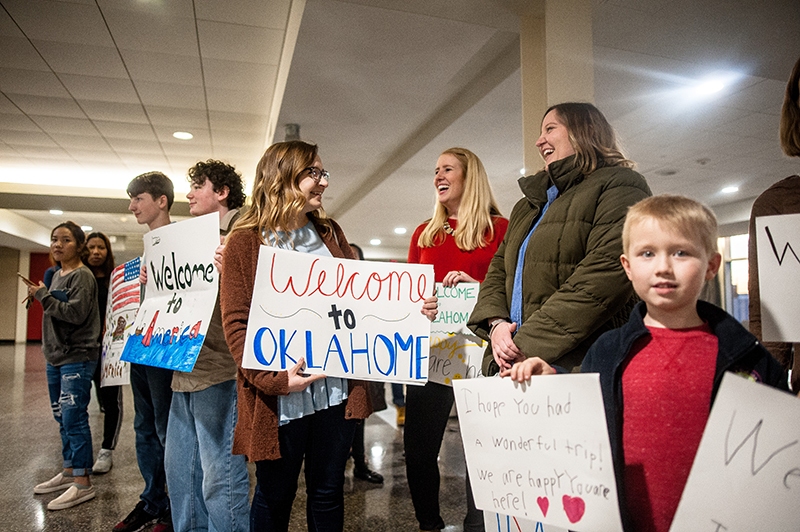 Welcome
to
America
Welcome
to
OKLAHOME
are here
I hope You had
a wonderful trip!
we are happy You are
here!
W
We
I